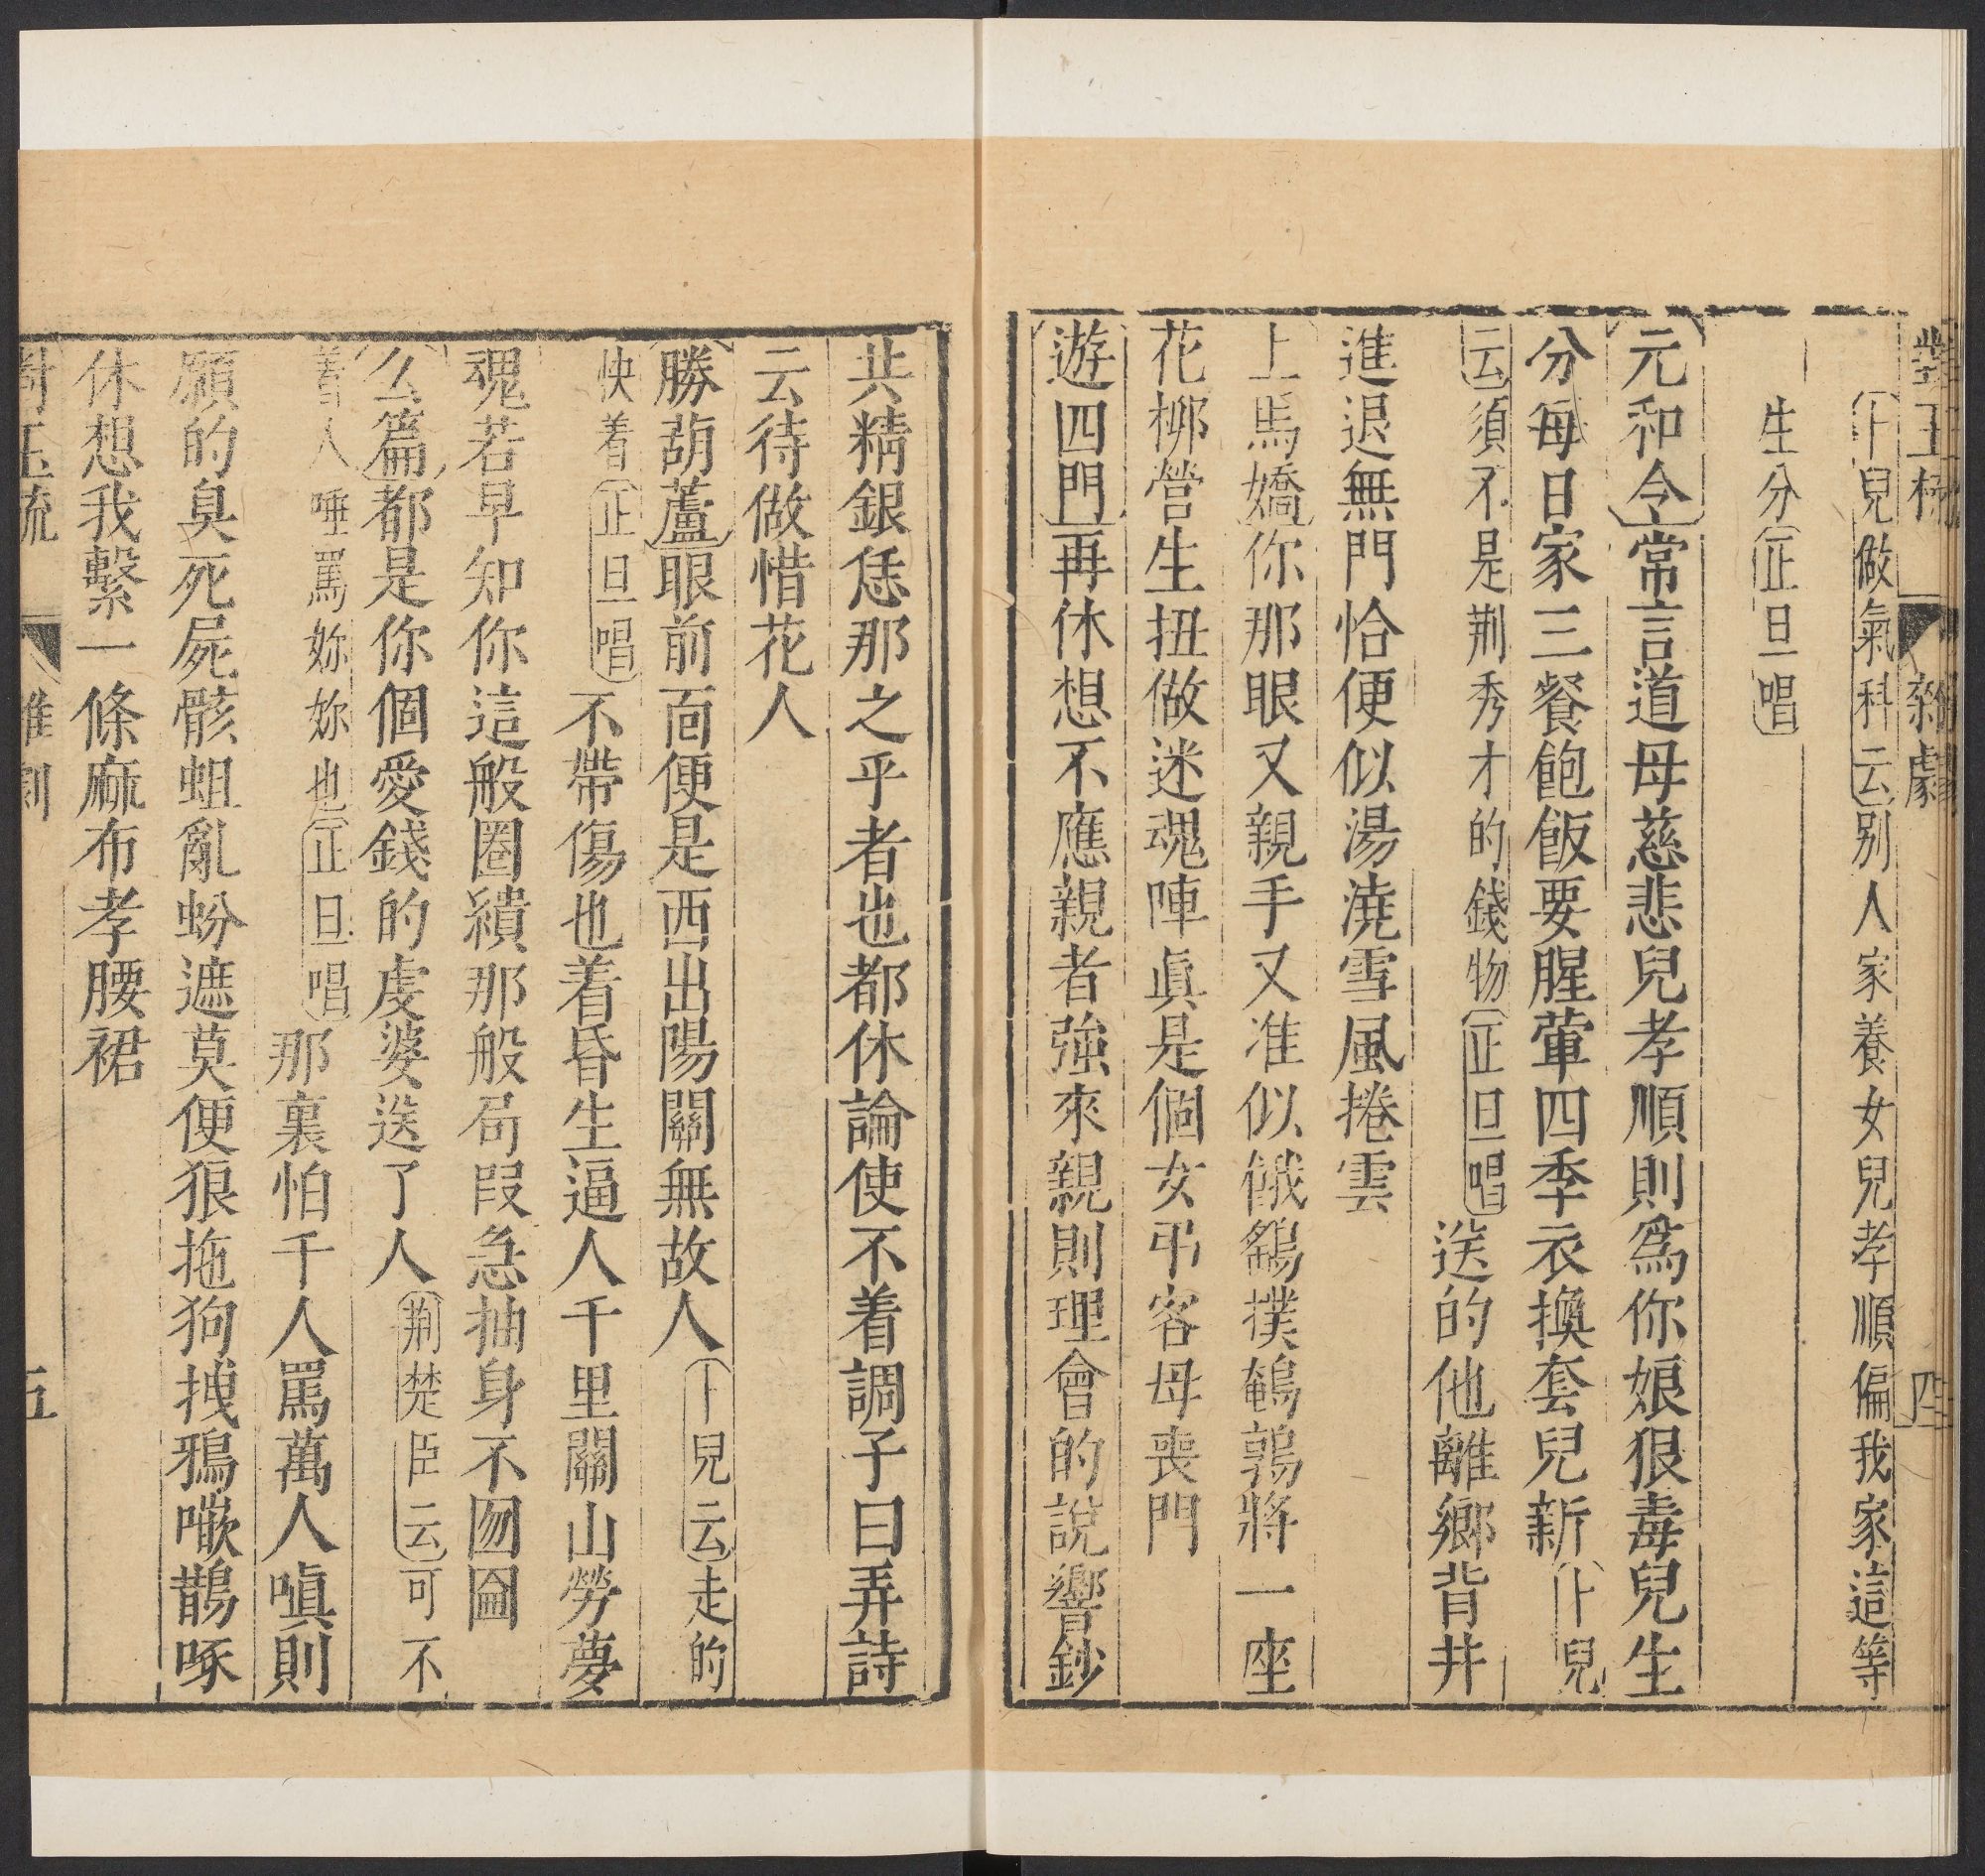 對玉梳 雜劇 四
卜兒做氣科云别人家養女兒孝順偏我家這等
生分正旦唱
元和令常言道母慈悲兒孝順則爲你娘狠毒兒生
分每日家三餐飽飯要腥葷四季衣換套兒新卜兒
云須不是荆秀才的錢物正旦唱送的他離鄉背井
進退無門恰便似湯澆雪風捲雲
上馬嬌你那眼又親手又准似餓鷂撲鵪鶉將一座
花栁營生扭做迷魂陣眞是個女弔客母喪門
遊四門再休想不應親者強來親則理會的說響鈔
共精銀恁那之乎者也都休論使不着調子曰弄詩
云待做惜花人
勝葫蘆眼前面便是西出陽關無故人卜兒云走的
快着正旦唱不帶傷也着昏生逼人千里關山勞夢
魂若早知你這般圈繢那般局叚急抽身不囫圇
么篇都是你個愛錢的虔婆送了人荆楚臣云可不
着人唾罵妳妳也正旦唱那裏怕千人罵萬人嗔則
願的臭死屍骸蛆亂蚡遮莫便狼拖狗拽鴉噷鵲啄
休想我繫一條麻布孝腰裙
對玉梳 雜劇 五